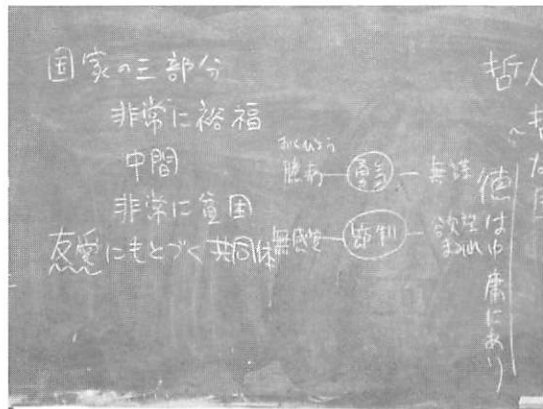 国家の三部分
非常に裕福
中間
非常に貧困
友愛にもとづく共同体
おくびょう
臆病 — 勇気 — 無謀
無感覚 — 節制 — 欲望まみれ
徳は中庸にあり
哲人